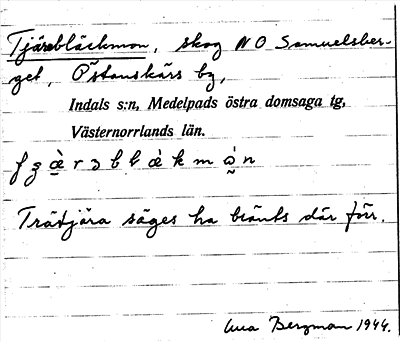 Tjärebläckmon, skog NO Samuelsber-
get, Östanskärs by,
Indals s:n, Medelpads östra domsaga tg,
Västernorrlands län.
Trätjära säges ha bränts där förr.
Bergman 1944.